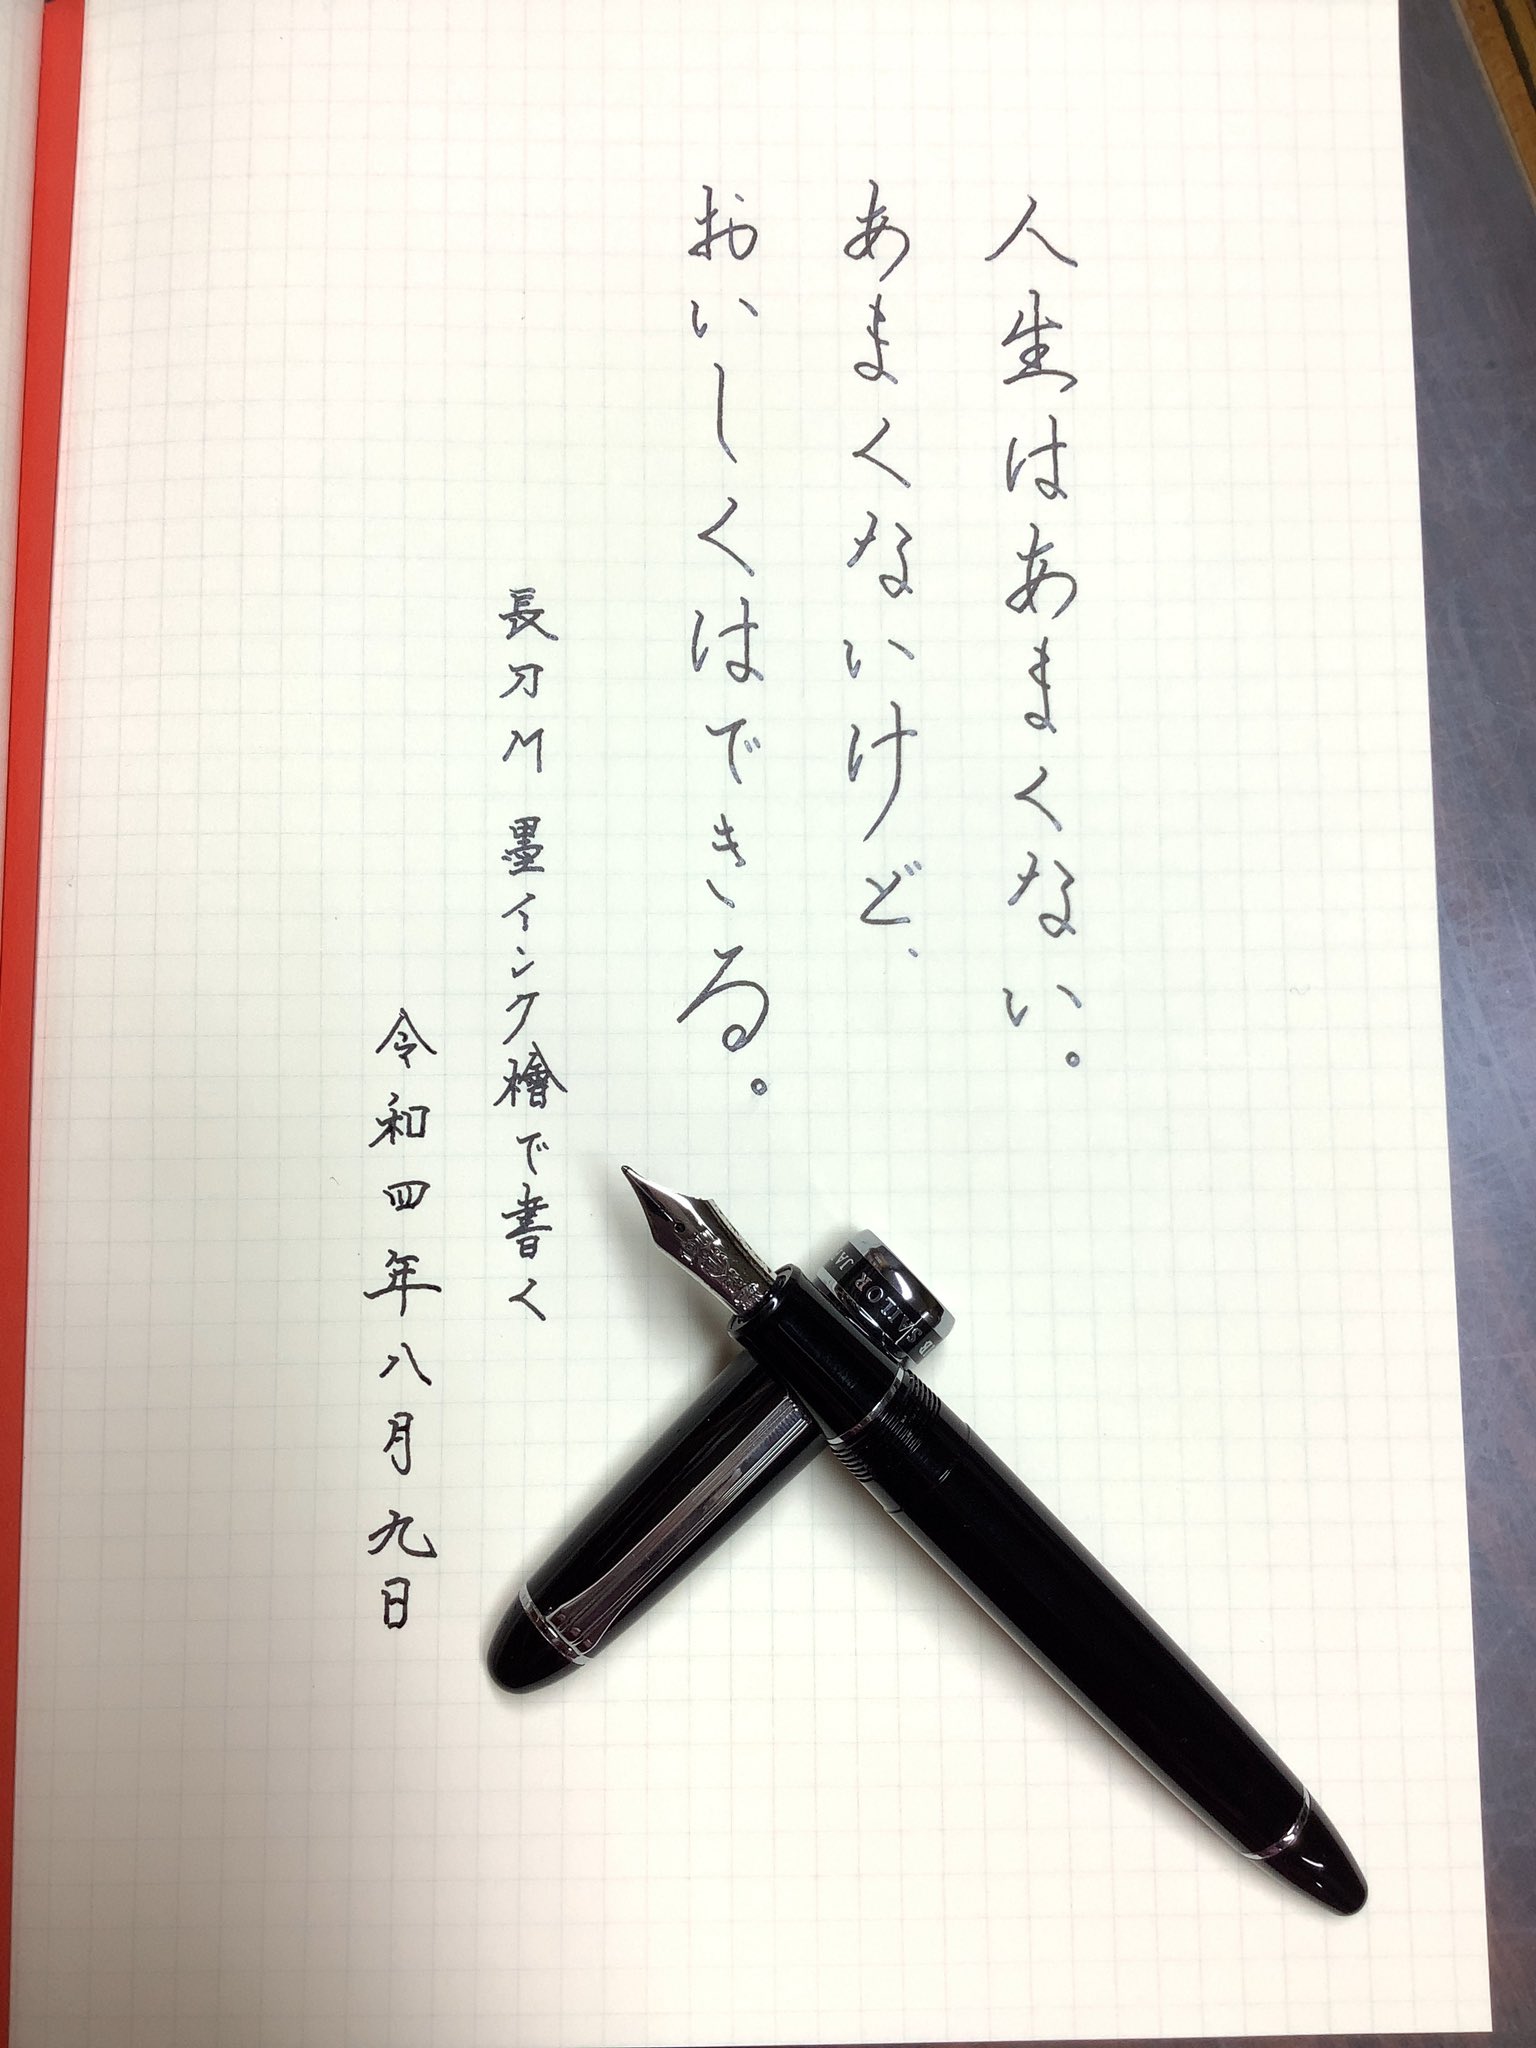 人生はあまくない。
あまくないけど、
おいしくはできる。
長刀M 墨インク檜で書く
令和四年八月九日
SAILOR JA